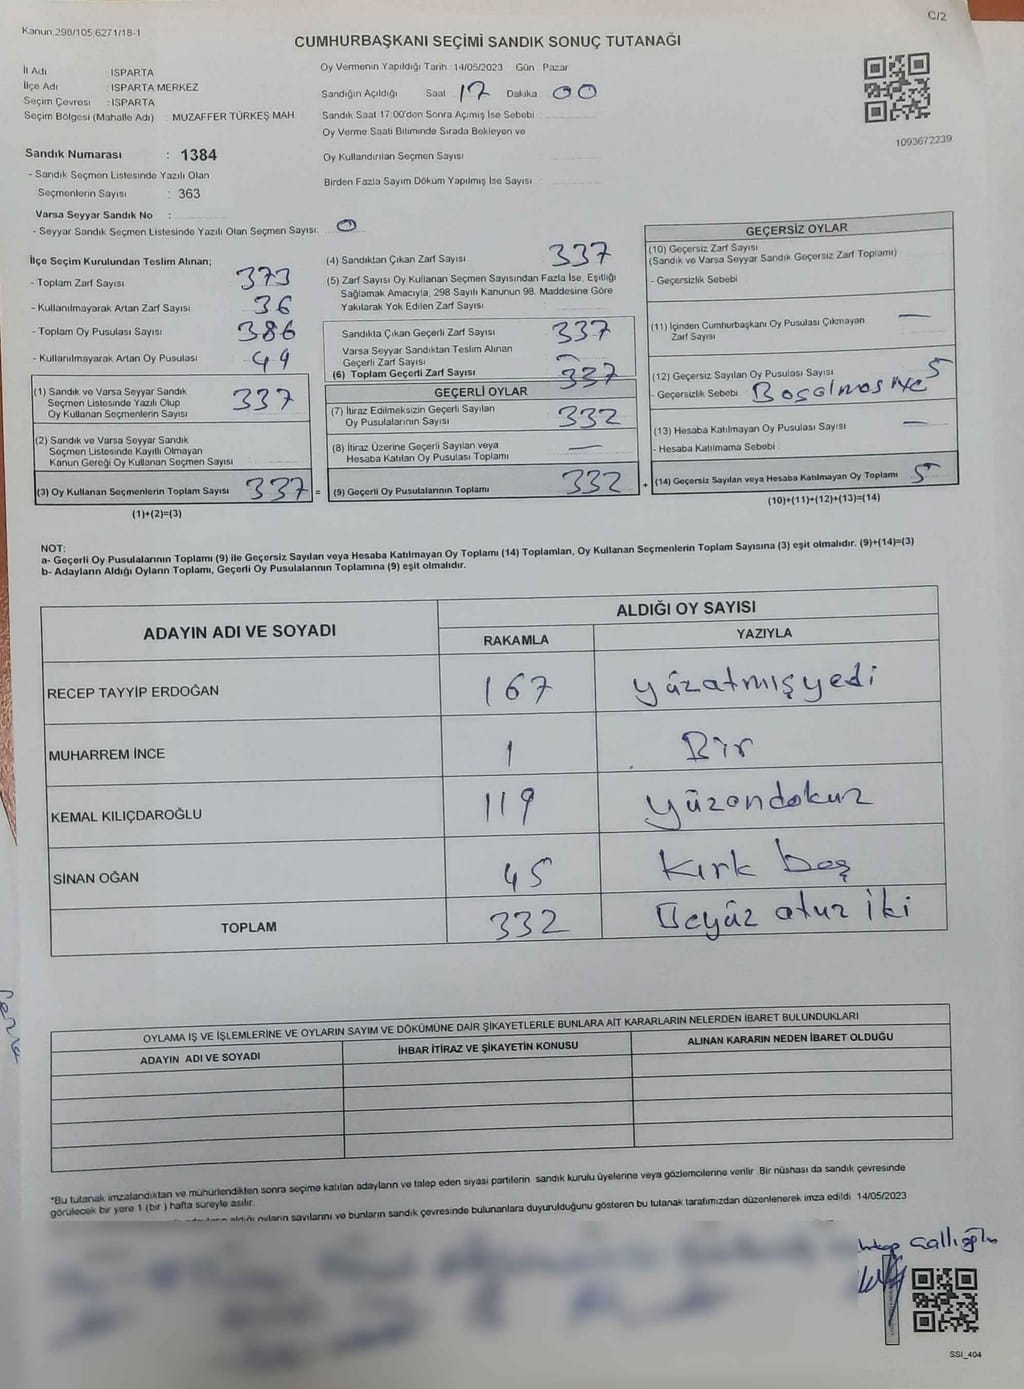 C/2
Kanun,298/105,6271/18-1
CUMHURBAŞKANI SEÇİMİ SANDIK SONUÇ TUTANAĞI
İl Adı : ISPARTA
İlçe Adı : ISPARTA MERKEZ
Seçim Çevresi : ISPARTA
Seçim Bölgesi (Mahalle Adı) : MUZAFFER TÜRKEŞ MAH.
Sandık Numarası : 1384
- Sandık Seçmen Listesinde Yazılı Olan
Seçmenlerin Sayısı : 363
Varsa Seyyar Sandık No :
- Seyyar Sandık Seçmen Listesinde Yazılı Olan Seçmen Sayısı: 0
Oy Vermenin Yapıldığı Tarih : 14/05/2023 Gün : Pazar
Sandığın Açıldığı Saat 17 Dakika 00
Sandık Saat 17:00'den Sonra Açımış İse Sebebi :
Oy Verme Saati Bitiminde Sırada Bekleyen ve
Oy Kullandırılan Seçmen Sayısı
Birden Fazla Sayım Döküm Yapılmış İse Sayısı :
1093672239
İlçe Seçim Kurulundan Teslim Alınan;
- Toplam Zarf Sayısı 373
- Kullanılmayarak Artan Zarf Sayısı 36
- Toplam Oy Pusulası Sayısı 386
- Kullanılmayarak Artan Oy Pusulası 49
(1) Sandık ve Varsa Seyyar Sandık
Seçmen Listesinde Yazılı Olup
Oy Kullanan Seçmenlerin Sayısı 337
(2) Sandık ve Varsa Seyyar Sandık
Seçmen Listesinde Kayıtlı Olmayan
Kanun Gereği Oy Kullanan Seçmen Sayısı
(3) Oy Kullanan Seçmenlerin Toplam Sayısı 337 =
(1)+(2)=(3)
(4) Sandıktan Çıkan Zarf Sayısı 337
(5) Zarf Sayısı Oy Kullanan Seçmen Sayısından Fazla İse, Eşitliği
Sağlamak Amacıyla, 298 Sayılı Kanunun 98. Maddesine Göre
Yakılarak Yok Edilen Zarf Sayısı
Sandıkta Çıkan Geçerli Zarf Sayısı 337
Varsa Seyyar Sandıktan Teslim Alınan
Geçerli Zarf Sayısı —
(6) Toplam Geçerli Zarf Sayısı 337
GEÇERLİ OYLAR
(7) İtiraz Edilmeksizin Geçerli Sayılan
Oy Pusulalarının Sayısı 332
(8) İtiraz Üzerine Geçerli Sayılan veya
Hesaba Katılan Oy Pusulası Toplamı —
(9) Geçerli Oy Pusulalarının Toplamı 332 +
GEÇERSİZ OYLAR
(10) Geçersiz Zarf Sayısı
(Sandık ve Varsa Seyyar Sandık Geçersiz Zarf Toplamı)
- Geçersizlik Sebebi :
(11) İçinden Cumhurbaşkanı Oy Pusulası Çıkmayan —
Zarf Sayısı
(12) Geçersiz Sayılan Oy Pusulası Sayısı 5
- Geçersizlik Sebebi Boşolması
(13) Hesaba Katılmayan Oy Pusulası Sayısı —
- Hesaba Katılmama Sebebi :
(14) Geçersiz Sayılan veya Hesaba Katılmayan Oy Toplamı 5
(10)+(11)+(12)+(13)=(14)
NOT:
a- Geçerli Oy Pusulalarının Toplamı (9) ile Geçersiz Sayılan veya Hesaba Katılmayan Oy Toplamı (14) Toplamları, Oy Kullanan Seçmenlerin Toplam Sayısına (3) eşit olmalıdır. (9)+(14)=(3)
b- Adayların Aldığı Oyların Toplamı, Geçerli Oy Pusulalarının Toplamına (9) eşit olmalıdır.
ADAYIN ADI VE SOYADI ALDIĞI OY SAYISI
RAKAMLA YAZIYLA
RECEP TAYYİP ERDOĞAN 167 yüzatmışyedi
MUHARREM İNCE 1 Bir
KEMAL KILIÇDAROĞLU 119 yüzondokuz
SİNAN OĞAN 45 Kırk beş
TOPLAM 332 Üçyüz otuz iki
OYLAMA İŞ VE İŞLEMLERİNE VE OYLARIN SAYIM VE DÖKÜMÜNE DAİR ŞİKAYETLERLE BUNLARA AİT KARARLARIN NELERDEN İBARET BULUNDUKLARI
ADAYIN ADI VE SOYADI İHBAR İTİRAZ VE ŞİKAYETİN KONUSU ALINAN KARARIN NEDEN İBARET OLDUĞU
*Bu tutanak imzalandıktan ve mühürlendikten sonra seçime katılan adayların ve talep eden siyasi partilerin sandık kurulu üyelerine veya gözlemcilerine verilir .Bir nüshası da sandık çevresinde
görülecek bir yere 1 (bir ) hafta süreyle asılır.
aldığı oyların sayılarını ve bunların sandık çevresinde bulunanlara duyurulduğunu gösteren bu tutanak tarafımızdan düzenlenerek imza edildi. 14/05/2023
SSI_404